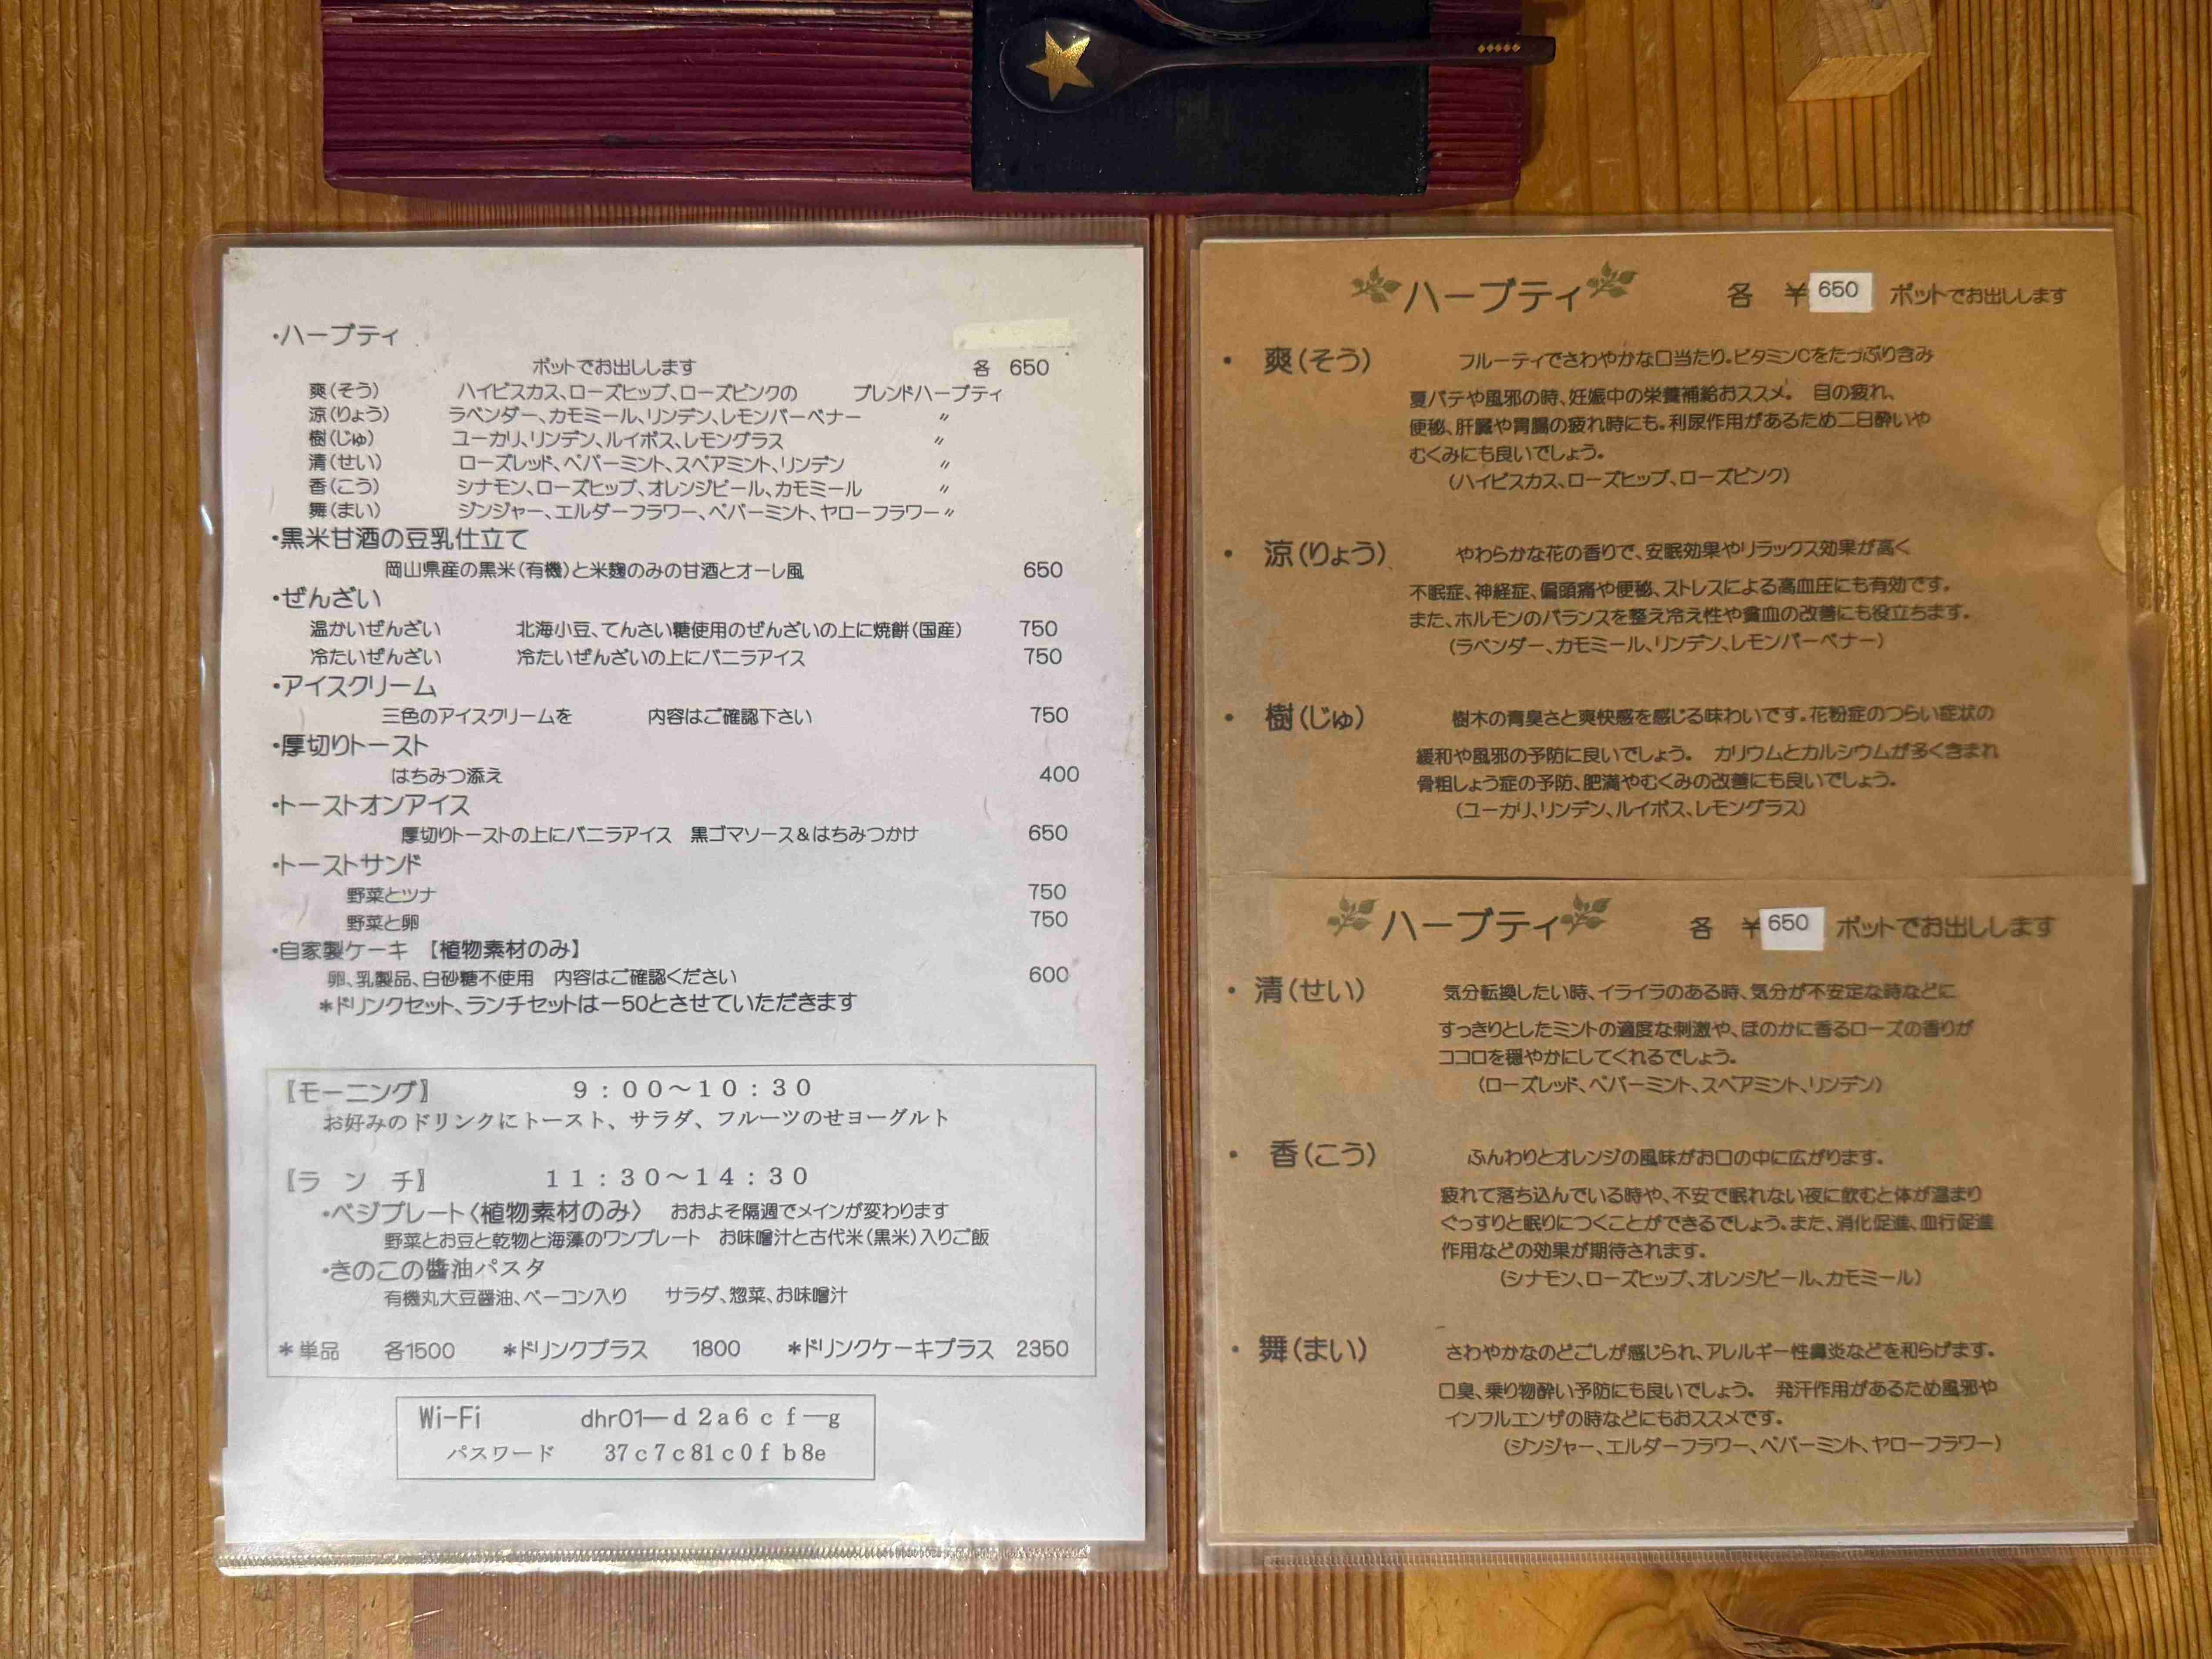 ・ハーブティ
ポットでお出しします 各 650
爽(そう) ハイビスカス、ローズヒップ、ローズピンクの ブレンドハーブティ
涼(りょう) ラベンダー、カモミール、リンデン、レモンバーベナー 〃
樹(じゅ) ユーカリ、リンデン、ルイボス、レモングラス 〃
清(せい) ローズレッド、ペパーミント、スペアミント、リンデン 〃
香(こう) シナモン、ローズヒップ、オレンジピール、カモミール 〃
舞(まい) ジンジャー、エルダーフラワー、ペパーミント、ヤローフラワー〃
・黒米甘酒の豆乳仕立て
岡山県産の黒米(有機)と米麹のみの甘酒とオーレ風 650
・ぜんざい
温かいぜんざい 北海小豆、てんさい糖使用のぜんざいの上に焼餅(国産) 750
冷たいぜんざい 冷たいぜんざいの上にバニラアイス 750
・アイスクリーム
三色のアイスクリームを 内容はご確認下さい 750
・厚切りトースト
はちみつ添え 400
・トーストオンアイス
厚切りトーストの上にバニラアイス 黒ゴマソース&はちみつかけ 650
・トーストサンド
野菜とツナ 750
野菜と卵 750
・自家製ケーキ 【植物素材のみ】
卵、乳製品、白砂糖不使用 内容はご確認ください 600
*ドリンクセット、ランチセットは−50とさせていただきます
【モーニング】 9:00～10:30
お好みのドリンクにトースト、サラダ、フルーツのせヨーグルト
【ラ ン チ】 11:30～14:30
・ベジプレート〈植物素材のみ〉 おおよそ隔週でメインが変わります
野菜とお豆と乾物と海藻のワンプレート お味噌汁と古代米(黒米)入りご飯
・きのこの醬油パスタ
有機丸大豆醤油、ベーコン入り サラダ、惣菜、お味噌汁
*単品 各1500 *ドリンクプラス 1800 *ドリンクケーキプラス 2350
Wi-Fi dhr01―d2a6cf―g
パスワード 37c7c81c0fb8e
ハーブティ 各 ¥650 ポットでお出しします
・ 爽(そう) フルーティでさわやかな口当たり。ビタミンCをたっぷり含み
夏バテや風邪の時、妊娠中の栄養補給おススメ。 目の疲れ、
便秘、肝臓や胃腸の疲れ時にも。利尿作用があるため二日酔いや
むくみにも良いでしょう。
(ハイビスカス、ローズヒップ、ローズピンク)
・ 涼(りょう) やわらかな花の香りで、安眠効果やリラックス効果が高く
不眠症、神経症、偏頭痛や便秘、ストレスによる高血圧にも有効です。
また、ホルモンのバランスを整え冷え性や貧血の改善にも役立ちます。
(ラベンダー、カモミール、リンデン、レモンバーベナー)
・ 樹(じゅ) 樹木の青臭さと爽快感を感じる味わいです。花粉症のつらい症状の
緩和や風邪の予防に良いでしょう。 カリウムとカルシウムが多く含まれ
骨粗しょう症の予防、肥満やむくみの改善にも良いでしょう。
(ユーカリ、リンデン、ルイボス、レモングラス)
ハーブティ 各 ¥650 ポットでお出しします
・ 清(せい) 気分転換したい時、イライラのある時、気分が不安定な時などに
すっきりとしたミントの適度な刺激や、ほのかに香るローズの香りが
ココロを穏やかにしてくれるでしょう。
(ローズレッド、ペパーミント、スペアミント、リンデン)
・ 香(こう) ふんわりとオレンジの風味がお口の中に広がります。
疲れて落ち込んでいる時や、不安で眠れない夜に飲むと体が温まり
ぐっすりと眠りにつくことができるでしょう。また、消化促進、血行促進
作用などの効果が期待されます。
(シナモン、ローズヒップ、オレンジピール、カモミール)
・ 舞(まい) さわやかなのどごしが感じられ、アレルギー性鼻炎などを和らげます。
口臭、乗り物酔い予防にも良いでしょう。 発汗作用があるため風邪や
インフルエンザの時などにもおススメです。
(ジンジャー、エルダーフラワー、ペパーミント、ヤローフラワー)